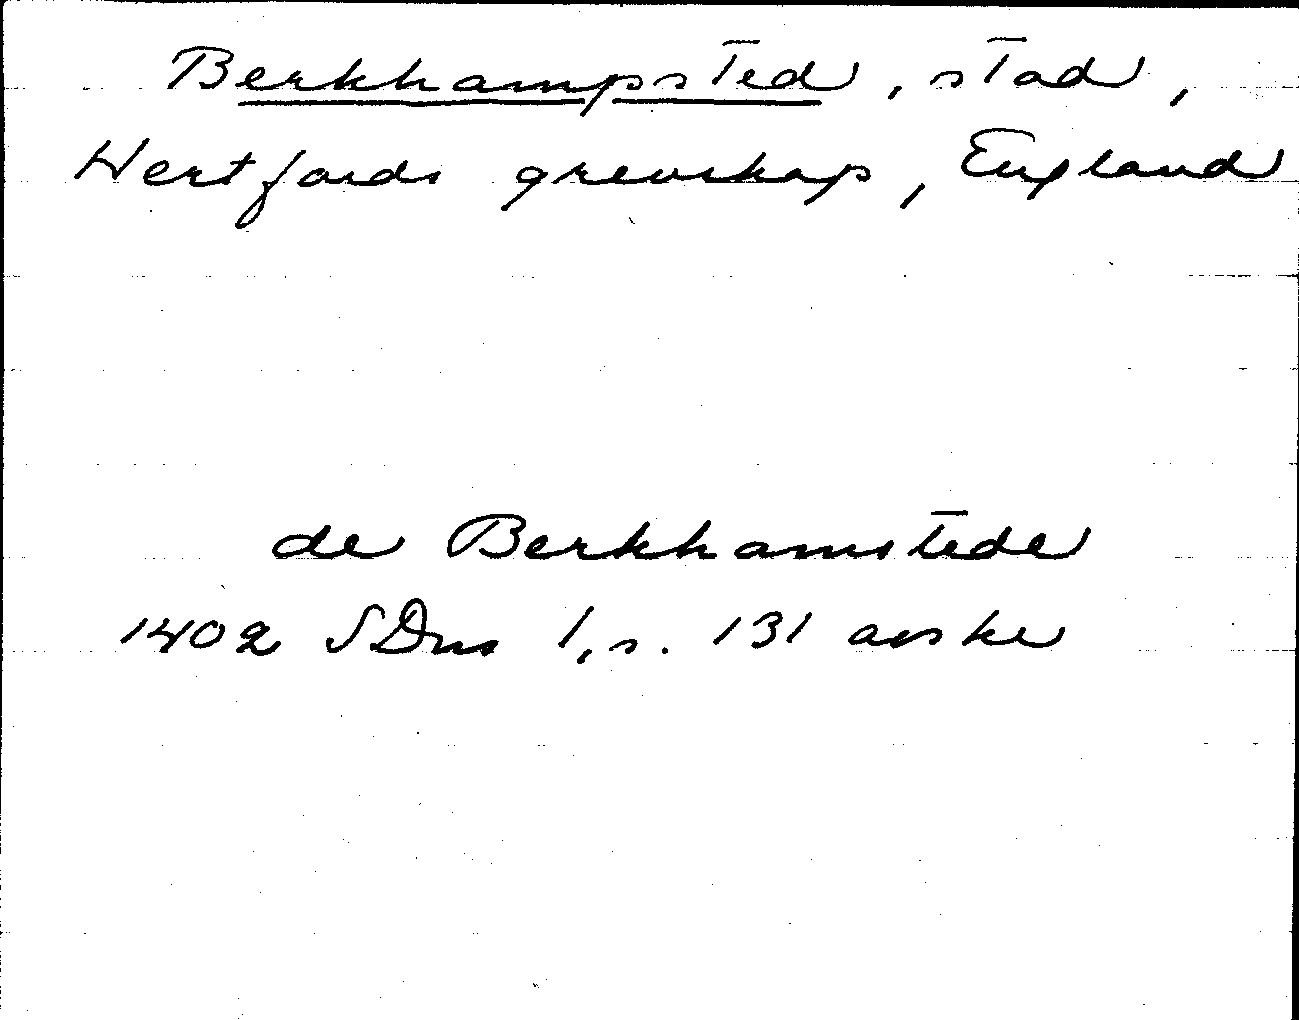 Berkhampsted, stad,
Hertfords grevskap, England
de Berkhamstede
1402 SDns 1, s. 131 avskr